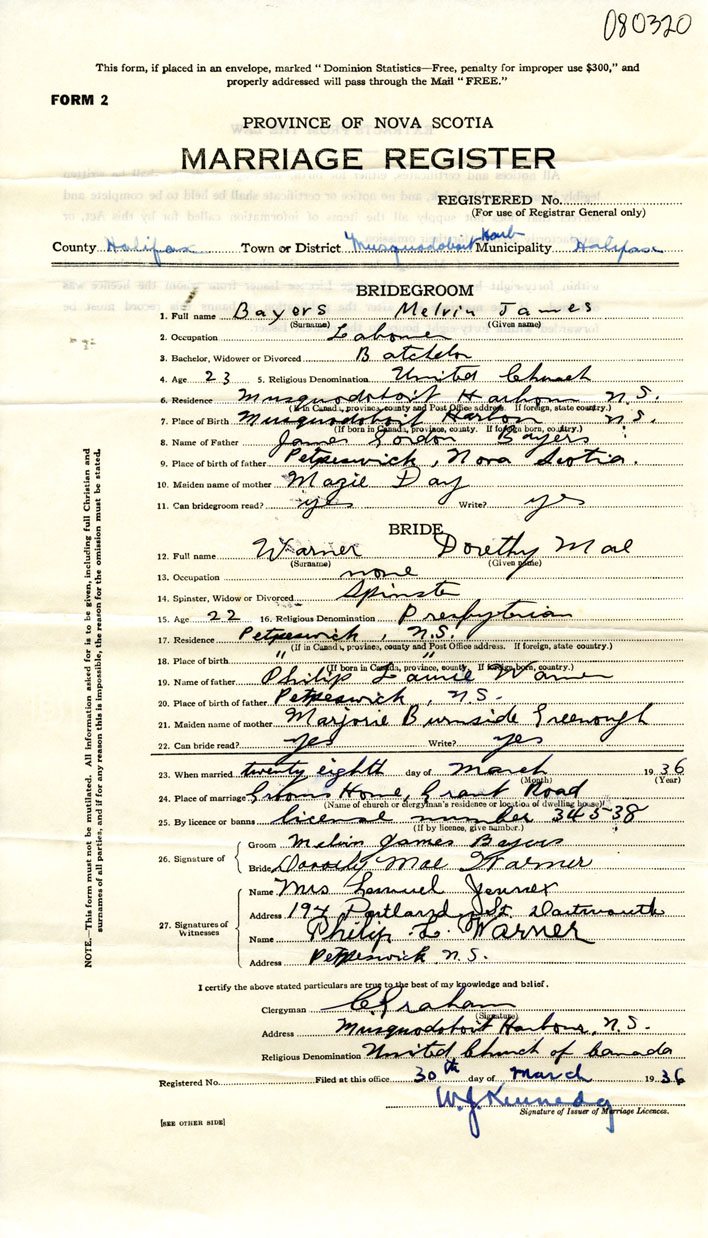 080320
This form, if placed in an envelope, marked "Dominion Statistics—Free, penalty for improper use $300," and
properly addressed will pass through the Mail "FREE."
FORM 2
PROVINCE OF NOVA SCOTIA
MARRIAGE REGISTER
REGISTERED No.
(For use of Registrar General only)
County Halifax Town or District Musquodoboit Harb Municipality Halifax
BRIDEGROOM
1. Full name Bayers Melvin James
(Surname) (Given name)
2. Occupation Labourer
3. Bachelor, Widower or Divorced Batchelor
4. Age 23 5. Religious Denomination United Church
6. Residence Musquodoboit Harbour N.S.
(If in Canada, province, county and Post Office address. If foreign, state country.)
7. Place of Birth Musquodoboit Harbor N.S.
(If born in Canada, province, county. If foreign born, country.)
8. Name of Father James Gordon Bayers
9. Place of birth of father Petpeswick, Nova Scotia.
10. Maiden name of mother Mazie Day
11. Can bridegroom read? yes Write? yes
BRIDE
12. Full name Warner Dorethy Mae
(Surname) (Given name)
13. Occupation none
14. Spinster, Widow or Divorced Spinster
15. Age 22 16. Religious Denomination Presbyterian
17. Residence Petpeswick, N.S.
(If in Canada, province, county and Post Office address. If foreign, state country.)
18. Place of birth " "
(If born in Canada, province, county. If foreign born, country.)
19. Name of father Philip Laurie Warner
20. Place of birth of father Petpeswick, N.S.
21. Maiden name of mother Marjorie Burnside Greenough
22. Can bride read? yes Write? yes
23. When married twenty eighth day of March 1936
(Month) (Year)
24. Place of marriage Home, Grant Road
(Name of church or clergyman's residence or location of dwelling house)
25. By licence or banns license number 345-38
(If by licence, give number.)
26. Signature of Groom Melvin James Bayers
Bride Dorothy Mae Warner
27. Signatures of Witnesses Name Mrs Lemuel Jennex
Address 194 Portland St. Dartmouth
Name Philip L. Warner
Address Petpeswick N.S.
I certify the above stated particulars are true to the best of my knowledge and belief.
Clergyman C. Graham
(Signature)
Address Musquodoboit Harbour, N.S.
Religious Denomination United Church of Canada
Registered No. Filed at this office 30th day of March 1936
W.J. Kennedy
Signature of Issuer of Marriage Licences.
[SEE OTHER SIDE]
NOTE.—This form must not be mutilated. All information asked for is to be given, including full Christian and
surnames of all parties, and if for any reason this is impossible, the reason for the omission must be stated.